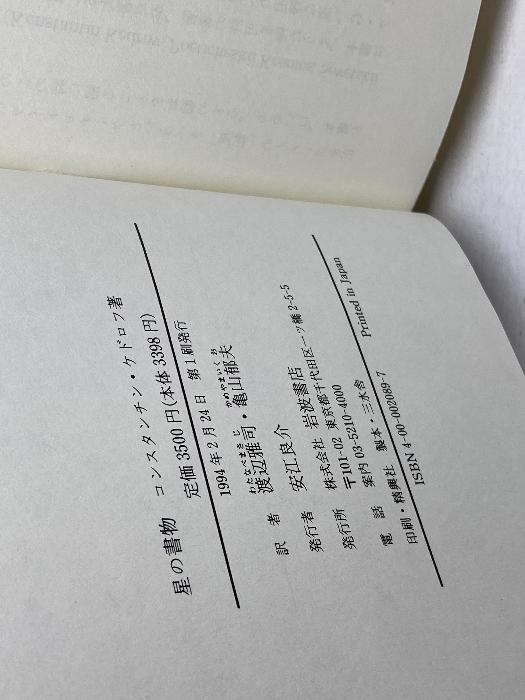 星の書物 コンスタンチン・ケドロフ著
定価3500円(本体3398円)
1994年2月24日 第1刷発行
わたなべまさじ かめやまいくお
訳者 渡辺雅司・亀山郁夫
発行者 安江良介
発行所 株式会社 岩波書店
〒101-02 東京都千代田区一ツ橋2-5-5
電話 案内03-5210-4000
印刷・精興社 製本・三水舎 Printed in Japan
ISBN 4-00-002089-7